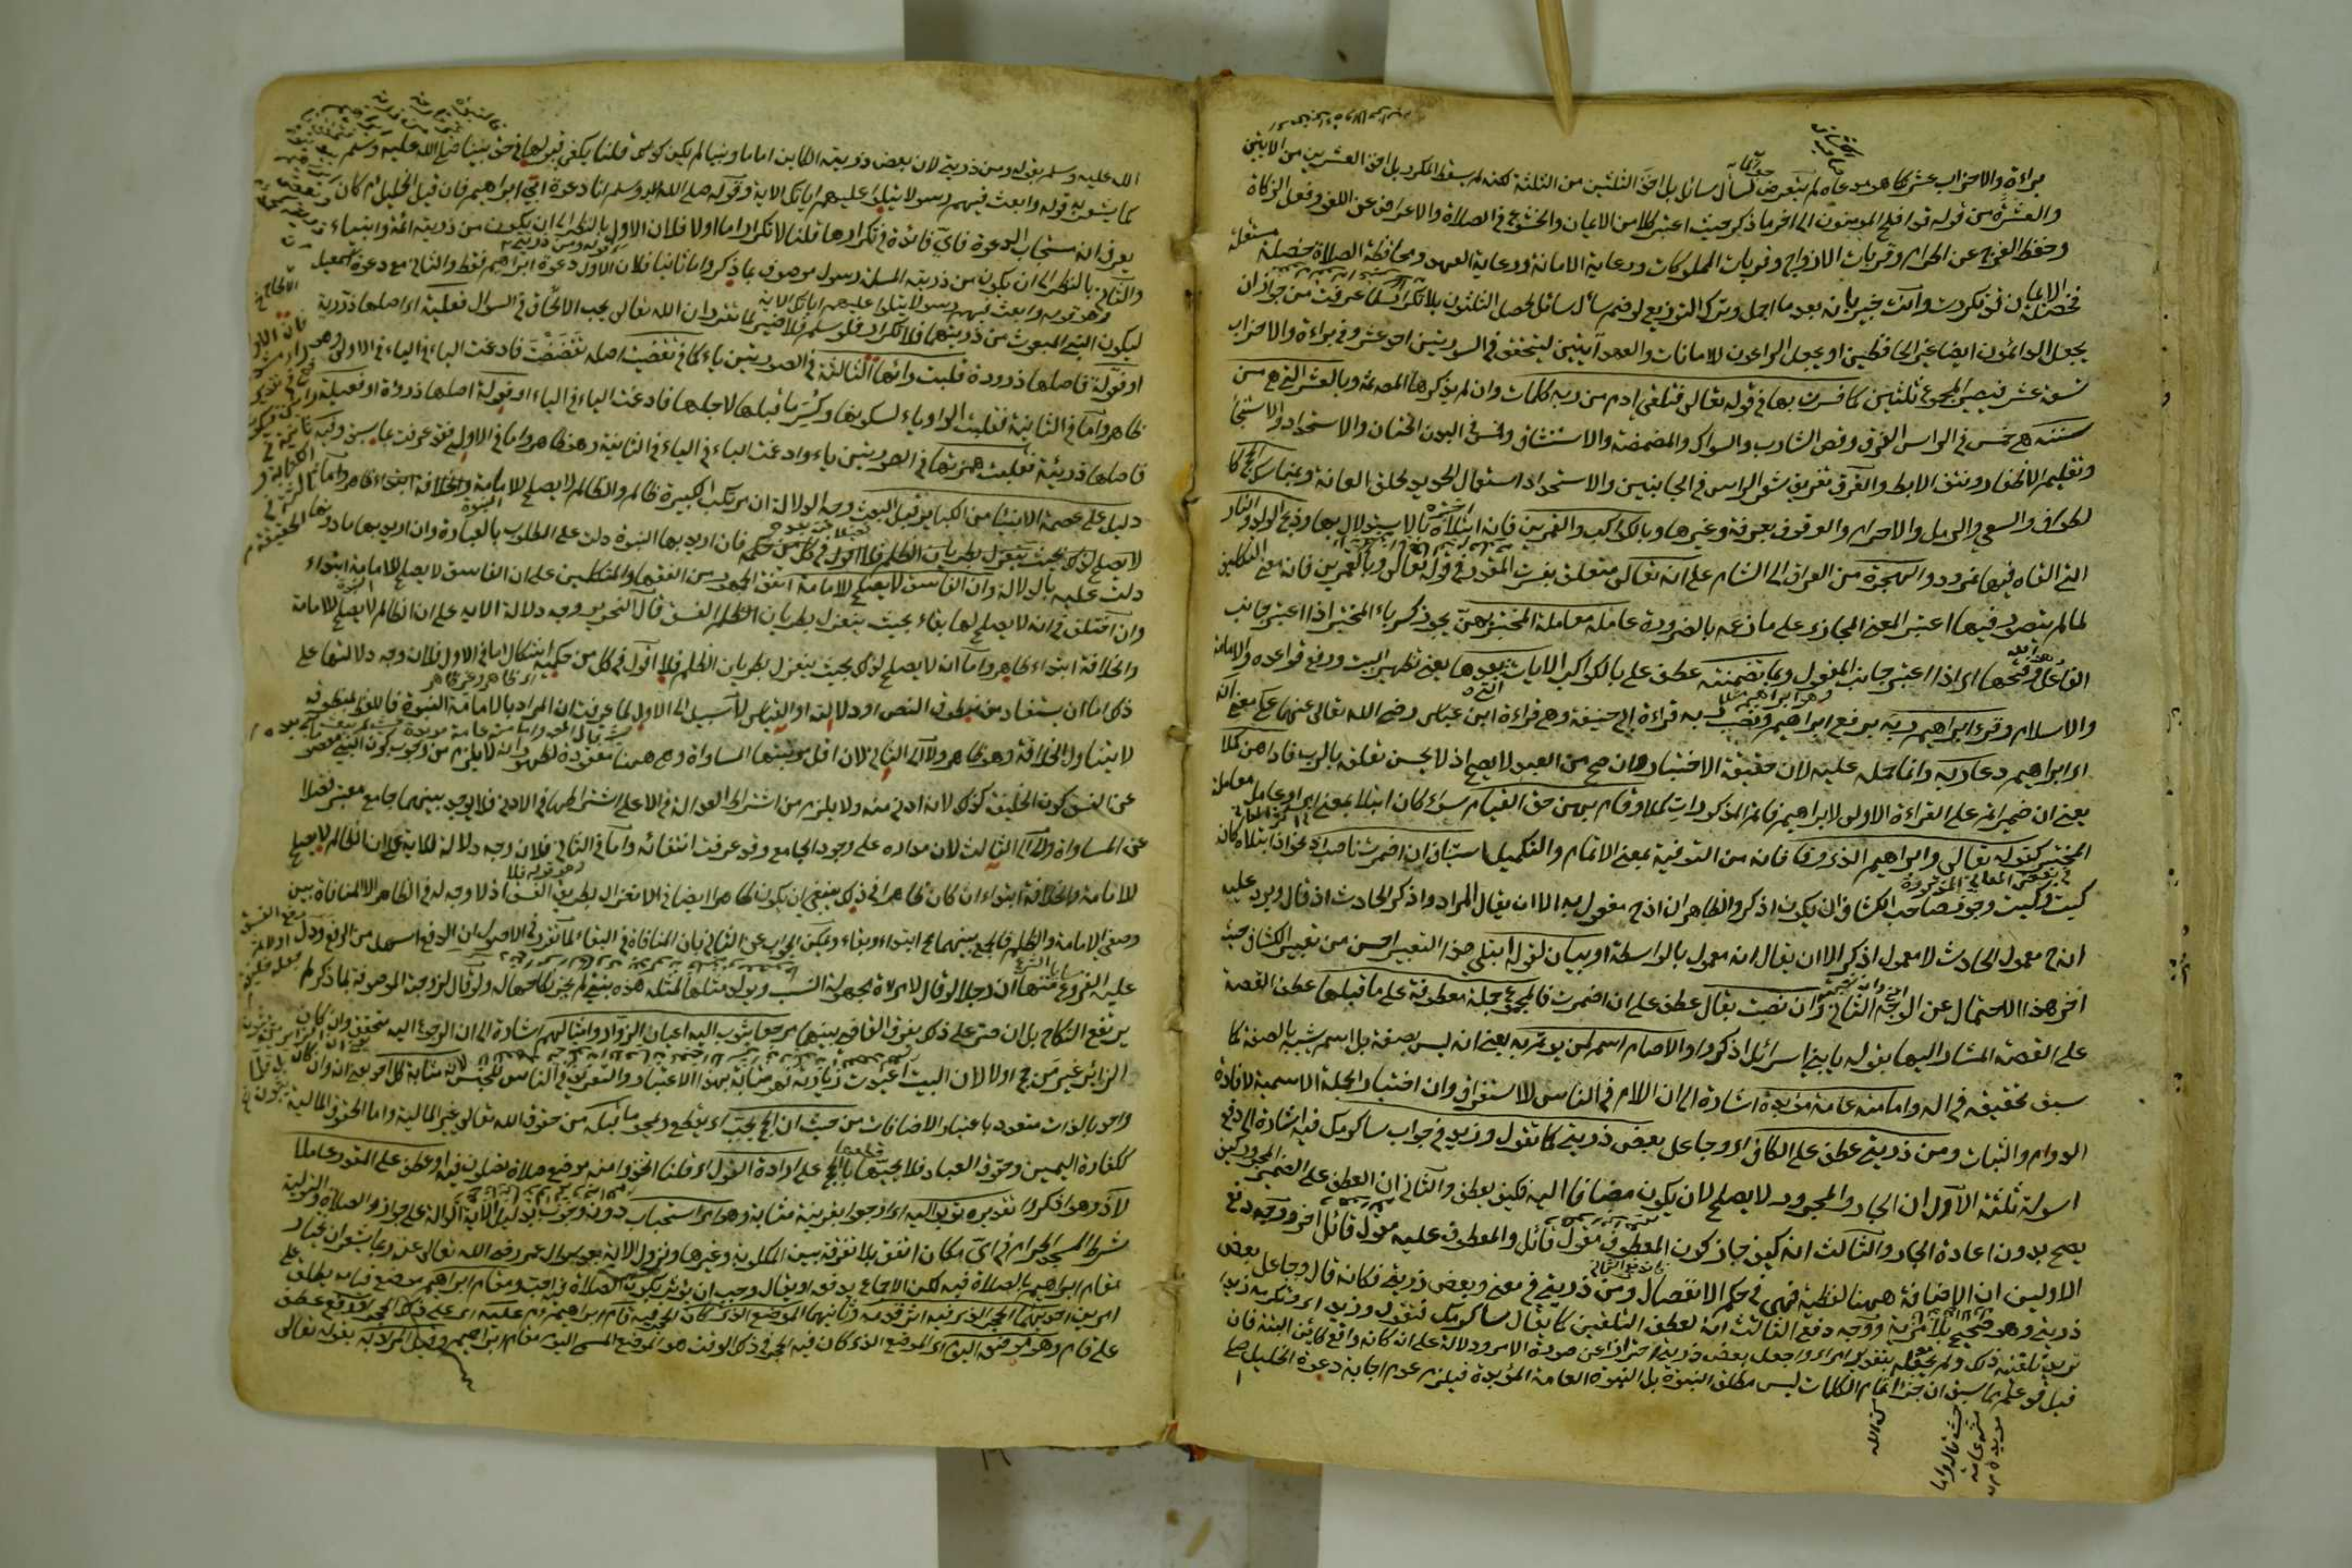 براءة والاحزاب عشر كما هو مدعاه لم يتعرض لسأل سائل بل اخذ الثلثين من الثلثة لكنه لم يسقط المكرر بل اخذ العشرين من الاثنين
والعشرة من قوله قد افلح المؤمنون الى اخر ما ذكر حيث اعتبر كلا من الايمان والخشوع في الصلاة والاعراض عن اللغو وفعل الزكاة
وحفظ الفرج عن الحرام وقربات الازواج وقربات المملوكات ورعاية الامانة ورعاية العهد ومحافظة الصلاة خصلة مستقلة
فخصلة الايمان قد تكررت وانت خبير بانه بعد ما اجمل وترك التوزيع لو ضم سأل سائل لحصل الثلثون بلا تكرار لما عرفت من جواز ان
يجعل الدائمون ايضا غير الحافظين او يجعل الراعون للامانات والعهد آيتين ليتحقق في السورتين احد عشر وفي براءة والاحزاب
تسعة عشر فيصير المجموع ثلثين كما فسرت بها في قوله تعالى فتلقى ادم من ربه كلمات وان لم يذكرها المص ثمة وبالعشر التي هي من
سننه هي خمس في الراس الفرق وقص الشارب والسواك والمضمضة والاستنشاق وخمس في البدن الختان والاستحداد والاستنجا
وتقليم الاظفار ونتف الابط والفرق تفريق شعر الراس في الجانبين والاستحداد استعمال الحديد لحلق العانة وبمناسك الحج كا
لطواف والسعي والرمل والاحرام والوقوف بعرفة وغيرها وبالكواكب والقمرين فانه ابتلاه بالاستدلال بها وذبح الولد والنار
التي القاه فيها نمرود والهجرة من العراق الى الشام على انه تعالى متعلق بفسرت المقدر في قوله تعالى وبالقمرين فانه مع التكلف
لما لم يتصور فيها اعتبر المعنى المجازي على ما زعمه بالضرورة عامله معاملة المختبر بهن يجوز كسر باء المختبر اذا اعتبر جانب
الفاعل وفتحها اي اذا اعتبر جانب المفعول وبما تضمنته عطف على بالكواكب الايات التي بعدها يعني تطهير البيت ورفع قواعده والامامة
والاسلام وقرئ ابراهيم ربه برفع ابراهيم ونصب ربه قراءة ابي حنيفة وهي قراءة ابن عباس رضي الله تعالى عنهما على معنى انه
اي ابراهيم دعا ربه وانما حمله عليه لان حقيقة الاختبار وان صح من العبد لا يصح اذ لا يحسن تعلقه بالرب فاداهن كملا
يعني ان ضمير اتم على القراءة الاولى لابراهيم فاتم المذكورات كملا وقام بهن حق القيام سواء كان ابتلا بمعنى امر او عامل معاملة
المختبر كقوله تعالى وابراهيم الذي وفى فانه من التوفية بمعنى الاتمام والتكميل استيناف ان اضمرت ناصب اذ نحو اذ ابتلاه كان
كيت وكيت وجوز صاحب الكشاف ان يكون اذكر والظاهر ان اذ مفعول به الا ان يقال المراد واذكر الحادث اذ قال ويرد عليه
ان اذ معمول الحادث لا معمول اذكر الا ان يقال انه معمول بالواسطة او بيان لقوله ابتلى هذا التعبير احسن من تعبير الكشاف حيث
اخر هذا الاحتمال عن الوجه الثاني وان نصبت بقال عطف على ان اضمرت فالمجموع جملة معطوفة على ما قبلها عطف القصة
على القصة المشار اليها بقوله يا بني اسرائيل اذكروا والامام اسم لمن يؤتم به يعني انه ليس بصفة بل اسم شبيه بالصفة كما
سبق تحقيقه في اله وامامته عامة مؤبدة اشارة الى ان اللام في الناس للاستغراق وان اختيار الجملة الاسمية لافادة
الدوام والثبات ومن ذريتي عطف على الكاف اي وجاعل بعض ذريتي كما تقول وزيدا في جواب ساكرمك فيه اشارة الى دفع
اسولة ثلثة الاول ان الجار والمجرور لا يصلح لان يكون مضافا اليه فكيف يعطف والثاني ان العطف على الضمير المجرور كيف
يصح بدون اعادة الجار والثالث انه كيف جاز كون المعطوف مقول قائل والمعطوف عليه مقول قائل اخر ووجه دفع
الاولين ان الاضافة ههنا لفظية فهي في حكم الانفصال ومن ذريتي في معنى وبعض ذريتي فكانه قال وجاعل بعض
ذريتي وهو صحيح بلا مرية ووجه دفع الثالث انه كعطف التلقين كما يقال ساكرمك فتقول وزيدا اي وتكرم زيدا
تريد تلقينه ذلك ولم يجعله بتقدير امر اي واجعل بعض ذريتي احترازا عن صورة الامر ودلالة على انه كانه واقع كائن البتة فان
قيل قد علم بما سبق ان جزا اتمام الكلمات ليس مطلق النبوة بل النبوة العامة المؤبدة فيلزم عدم اجابة دعوة الخليل صلى
الله عليه وسلم بقوله ومن ذريتي لان بعض ذريته الكاين اماما ونبيا لم يكن كذلك قلنا يكفي قبولها في حق نبينا صلى الله عليه وسلم
كما يشعر به قوله وابعث فيهم رسولا يتلوا عليهم اياتك الاية وقوله صلى الله عليه وسلم انا دعوة ابي ابراهيم فان قيل الخليل لم كان
يعرف انه مستجاب الدعوة فاي فائدة في تكرارها قلنا لا تكرار اما اولا فلان الاول بالنظر الى ان يكون من ذريته ائمة وانبياء
والثاني بالنظر الى ان يكون من ذريته المسلمة رسول موصوف بما ذكر واما ثانيا فلان الاول دعوة ابراهيم فقط والثاني مع دعوة اسمعيل
ليكون النبي المبعوث من ذريتهما فلا تكرار فلو سلم فلا ضير لما تقرر ان الله تعالى يحب الالحاح في السؤال فعلية اي اصلها ذررية
او فعولة فاصلها ذرورة قلبت رائها الثالثة في الصورتين ياء كما في تقضيت اصله تقضضت فادغمت الياء في الياء في الاولى وهو
ظاهر واما في الثانية فقلبت الواو ياء لسكونها وكسر ما قبلها لاجلها فادغمت الياء في الياء او فعولة اصلها ذروءة او فعيلة
فاصلها ذريئة فقلبت همزتها في الصورتين ياء وادغمت الياء في الياء في الثانية وهو ظاهر واما في الاولى فقد عرفت مما سبق وفيه
دليل على عصمة الانبياء من الكبائر قبل البعث وجه الدلالة ان مرتكب الكبيرة ظالم والظالم لا يصلح للامامة والخلافة ابتداء ظاهر واما
لا يصلح لذلك بحيث ينعزل بطريان الظلم فلا اقول في كل من حكميه فان اريد بها النبوة دلت على المطلوب بالعبارة وان اريد بها ما دونها
دلت عليه بالدلالة وان الفاسق لا يصلح للامامة اتفق الجمهور من الفقها والمتكلمين على ان الفاسق لا يصلح للامامة ابتداء
وان اختلف في انه لا يصلح لها بقاء بحيث ينعزل بطريان الظلم الفسق قال النحرير وجه دلالة الاية على ان الظالم لا يصلح للامامة
والخلافة ابتداء ظاهر واما ان لا يصلح لذلك بحيث ينعزل بطريان الظلم فلا اقول في كل من حكميه اشكال اما في الاول فلان وجه دلالتها على
ذلك اما ان يستفاد من منطوق النص او دلالته او القياس لا سبيل الى الاول لما عرفت ان المراد بالامامة النبوة فاللفظ بمنطوقه
لا يتناول الخلافة وهو ظاهر ولا الى الثاني لان اقل مرتبتها المساواة وهي ههنا مفقودة لظهور انه لا يلزم من وجوب كون النبي معصوما
عن الفسق كون الخليفة كذلك لانه ادنى منه ولا يلزم من اشتراط العدالة في الاعلى اشتراطها في الادنى فلا يوجد بينهما جامع معتبر فضلا
عن المساواة ولا الى الثالث لان مداره على وجود الجامع وقد عرفت انتفائه واما في الثاني فلان وجه دلالة الاية على ان الظالم لا يصلح
للامامة والخلافة ابتداء ان كان ظاهرا في ذلك ينبغي ان يكون ظاهرا ايضا في الانعزال بطريق الفسق اذ لا وجه له في الظاهر الا المنافاة بين
وصفي الامامة والظلم فالجمع بينهما مح ابتداء وبقاء ويمكن الجواب عن الثاني بان المنافاة في البقاء لما تقرر في الاصول ان الدفع اسهل من الرفع ودل
عليه الفروع منها ان رجلا لو قال لامراة مجهولة النسب ويولد مثلها لمثله هذه بنتي لم يجز نكاحها له ولو قال لزوجته الموصوفة بما ذكر لم
يرتفع النكاح بل ان اصر على ذلك يفرق القاضي بينهما مرجعا يثوب اليه اعيان الزوار او امثالهم اشارة الى ان الرجوع اليه متحقق وان كان
الزائر غير من حج اولا لان البيت اعيدت زيارته فهو مثابة بهذا الاعتبار والتعريف في الناس للجنس لانه مثابة كل احد يعني انه وان كان
واحد بالذات متعدد باعتبار الاضافات من حيث ان الحج يجب اي يقطع ويمحو ما قبله من حقوق الله تعالى غير المالية واما الحقوق المالية
ككفارة اليمين وحقوق العباد فلا يجبها بالحج على ارادة القول اي قلنا اتخذوا منه موضع صلاة تصلون فيه او عطف على المقدر عاملا
لاذ وهو اذكروا تقديره ثوبوا اليه اي ارجعوا بقرينة مثابة وهو امر استحباب دون وجوب بدليل الاية الدالة على جواز الصلاة والتولية
شطر المسجد الحرام في اي مكان اتفق بلا تفرقة بين المكان وغيرها ونزول الاية بعد سؤال عمر رضي الله تعالى عنه ربما يشعر ان
مقام ابراهيم بالصلاة فيه لكن الاجماع يدفعه او يقال وجب ان يؤثر بكون الصلاة فيه احب ومقام ابراهيم موضع قيامه يطلق على
امرين احدهما الحجر الذي فيه اثر قدمه وثانيهما الموضع الذي كان الحجر فيه قام ابراهيم عم عليه اي على ذلك الحجر
على قام وهو موضعه اليوم اي الموضع الذي كان فيه الحجر في ذلك الوقت هو الموضع المسمى اليوم مقام ابراهيم وقيل المراد به بقوله تعالى